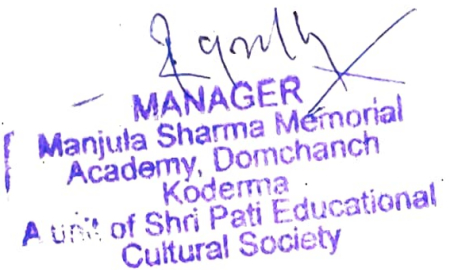 MANAGER
Manjula Sharma Memorial
Academy, Domchanch
Koderma
A unit of Shri Pati Educational
Cultural Society